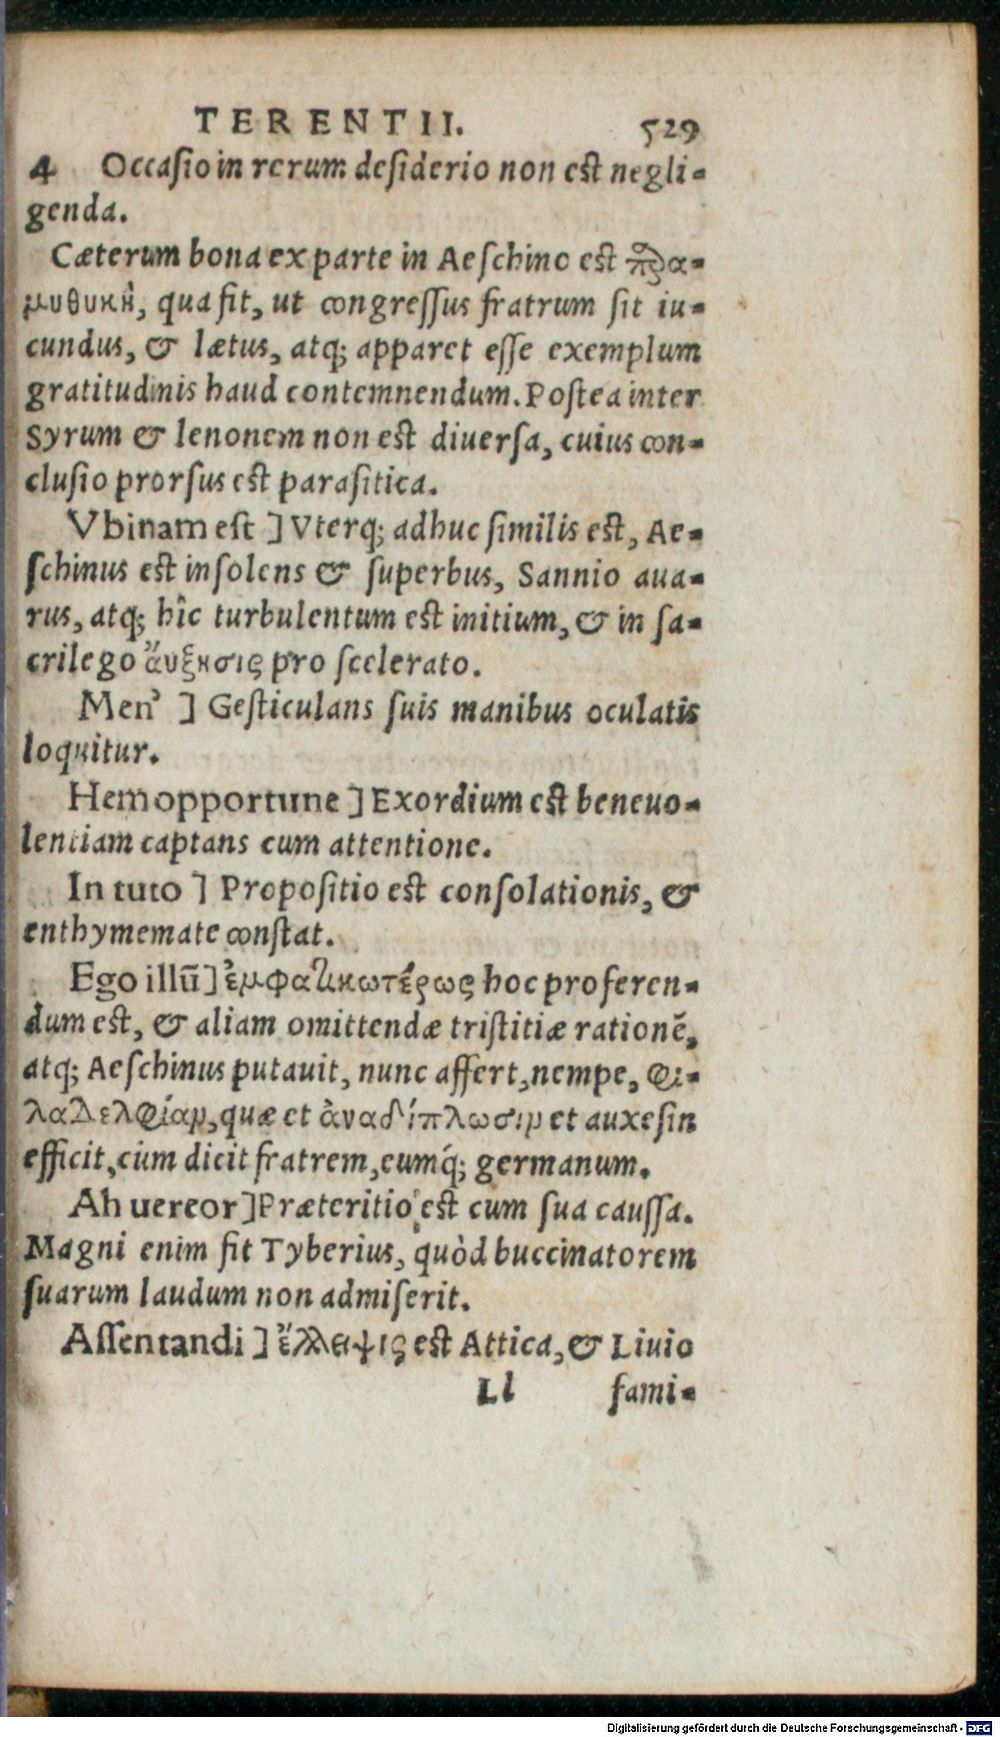 TERENTII. 529
4 Occasio in rerum desiderio non est negli-
genda.
Cæterum bona ex parte in Aeschino est παρα-
μυθυκὴ, qua fit, ut congressus fratrum sit iu-
cundus, & lætus, atq; apparet esse exemplum
gratitudinis haud contemnendum. Postea inter
Syrum & lenonem non est diuersa, cuius con-
clusio prorsus est parasitica.
Vbinam est ] Vterq; adhuc similis est, Ae-
schinus est insolens & superbus, Sannio aua-
rus, atq; hîc turbulentum est initium, & in sa-
crilego ἄυξησις pro scelerato.
Men' ] Gesticulans suis manibus oculatis
loquitur.
Hem opportune ] Exordium est beneuo-
lentiam captans cum attentione.
In tuto ] Propositio est consolationis, &
enthymemate constat.
Ego illũ ] ἐμφατικωτέρως hoc proferen-
dum est, & aliam omittendæ tristitiæ rationẽ,
atq; Aeschinus putauit, nunc affert, nempe, φι-
λαδελφίαν, quæ et ἀναδίπλωσιν et auxesin
efficit, cùm dicit fratrem, eumq́; germanum.
Ah uereor ] Præteritio est cum sua caussa.
Magni enim fit Tyberius, quòd buccinatorem
suarum laudum non admiserit.
Assentandi ] ἔλλειψις est Attica, & Liuio
Ll fami-
Digitalisierung gefördert durch die Deutsche Forschungsgemeinschaft - DFG